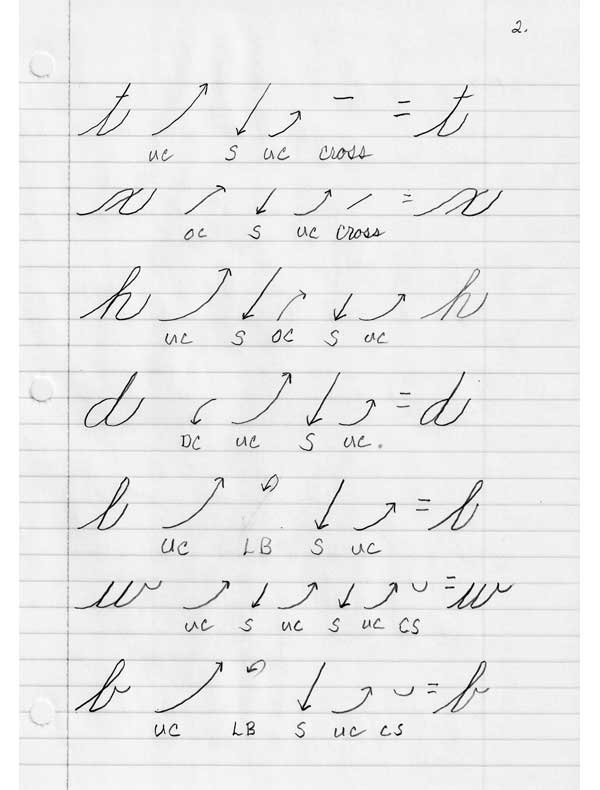 2.
t = t
UC S UC CROSS
x = x
OC S UC CROSS
h h
UC S OC S UC
d = d
DC UC S UC.
l = l
UC LB S UC
w = w
UC S UC S UC CS
b = b
UC LB S UC CS